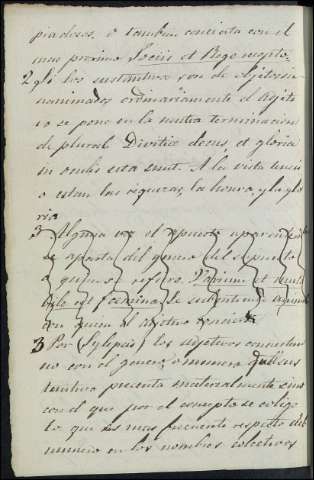 piadosos, o tambien concierta con el
mas proximo Sociis et Rege recepto.
2 Si los sustantivos son de objetos in
animados ordinariamente el adjeti
vo se pone en la neutra terminacion
de plural Divitiæ decus, et gloria
in oculis sita sunt. A la vista tenei
s estan las riquezas, la honra, y la glo
ria
3 Alguna vez el
se aparta del genero del supuesto
a quien se refiere. Varium et muta
bile est foemina se subentiende
con quien el adjetivo
3 Por (Sylepsis) los adjetivos conciertan
no con el genero o numero que el sus
tantivo presenta materialmente sino
con el que por el concepto se colige
lo que es mas frecuente respecto del
numero en los nombres colectivos